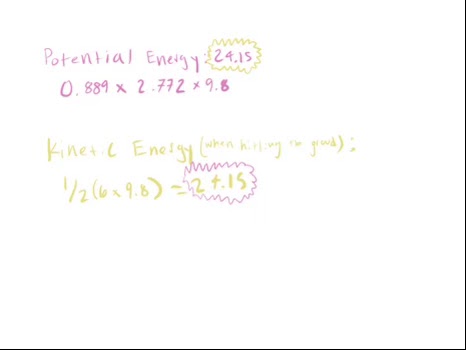 Potential Energy: 24.15
0.889 x 2.772 x 9.8
Kinetic Energy (when hitting the ground):
1/2 (6 x 9.8) = 24.15